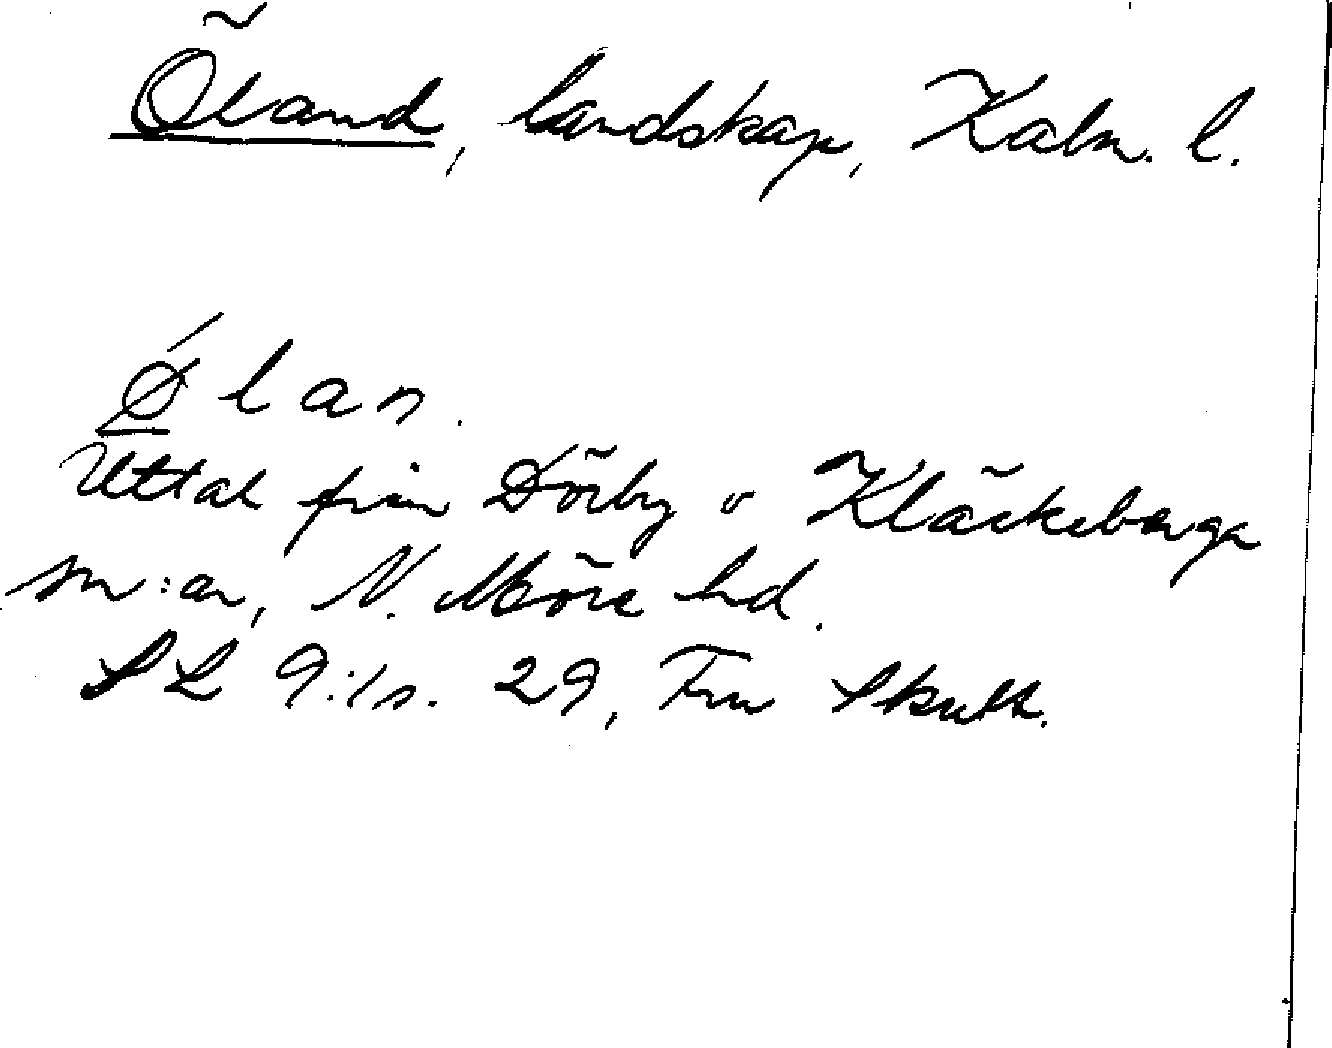 Öland, landskap, Kalm. l.
Ǿlan.
Uttal från Dörby o Kläckeberga
sn:ar, N. Möre hd.
SL 9:1 s. 29, Fru Skulth.